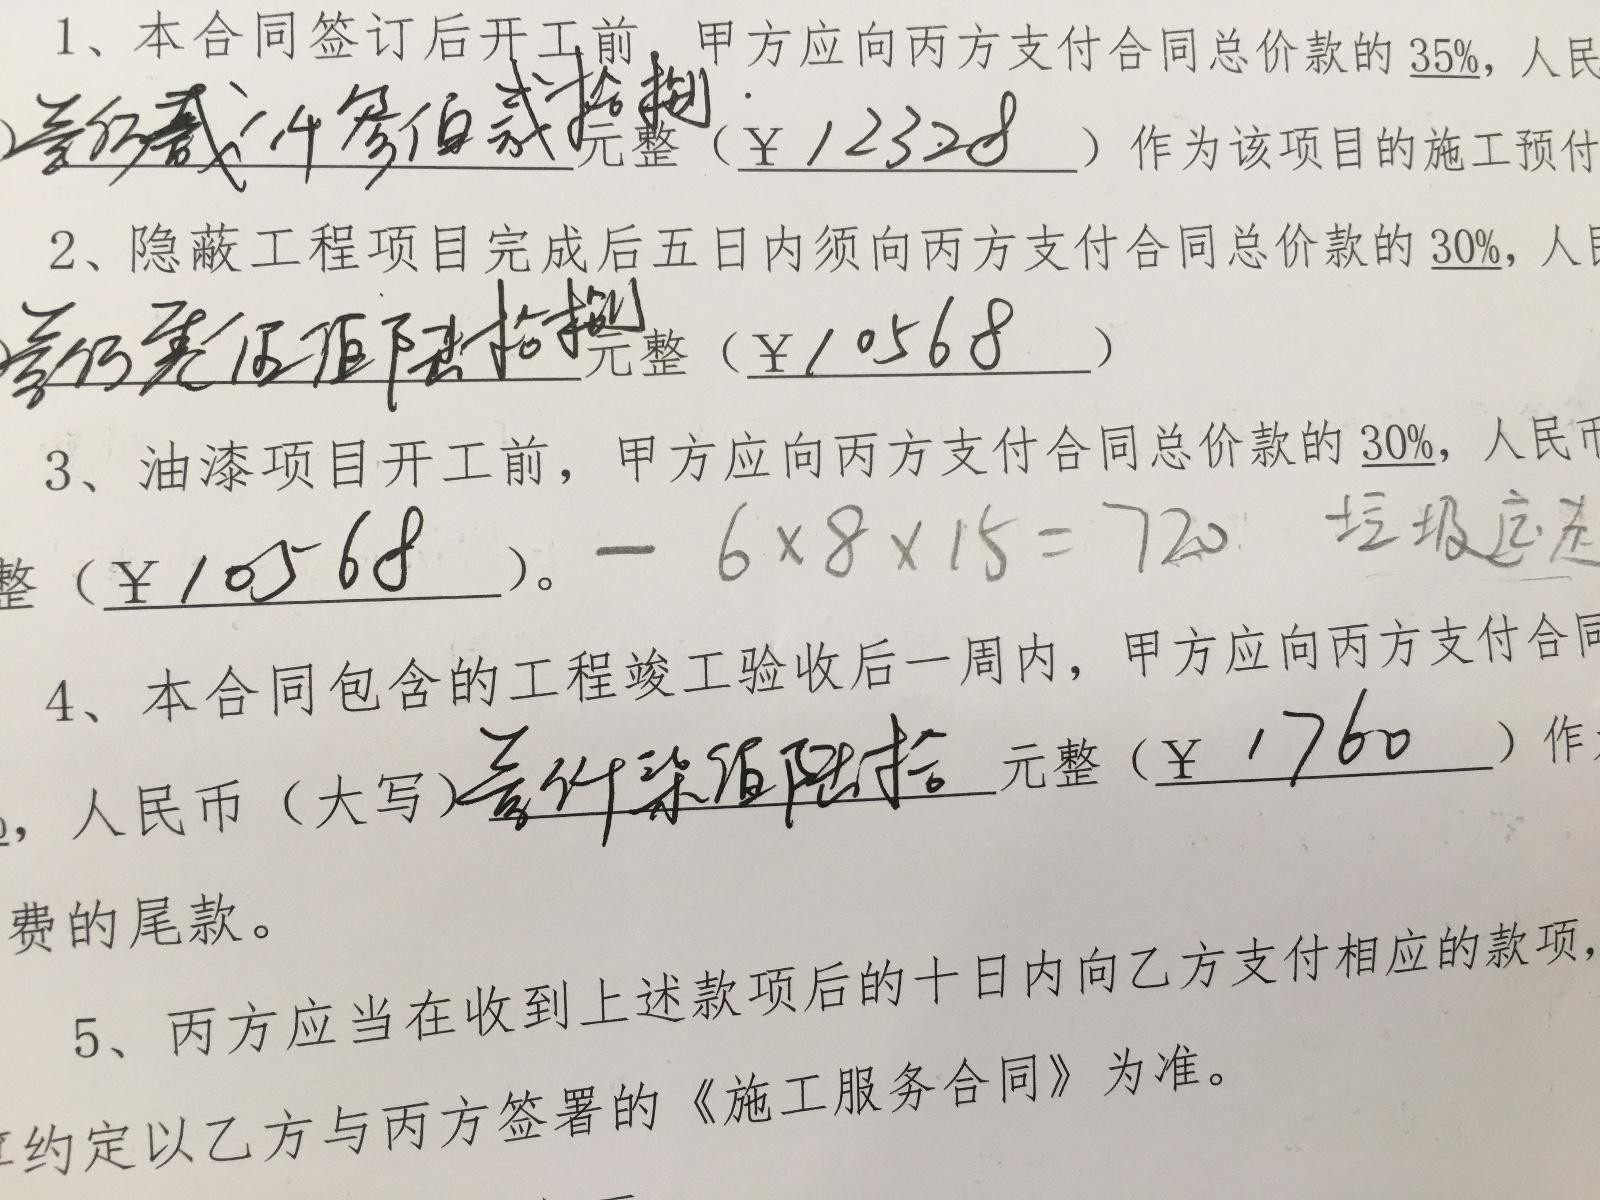 1、本合同签订后开工前，甲方应向丙方支付合同总价款的35%，人民
壹万贰仟叁佰贰拾捌元整（￥12328）作为该项目的施工预付
2、隐蔽工程项目完成后五日内须向丙方支付合同总价款的30%，人民
壹万零伍佰陆拾捌元整（￥10568）
3、油漆项目开工前，甲方应向丙方支付合同总价款的30%，人民币
整（￥10568）。— 6×8×15=720 垃圾
4、本合同包含的工程竣工验收后一周内，甲方应向丙方支付合同
，人民币（大写）壹仟柒佰陆拾元整（￥1760）作
费的尾款。
5、丙方应当在收到上述款项后的十日内向乙方支付相应的款项，
约定以乙方与丙方签署的《施工服务合同》为准。